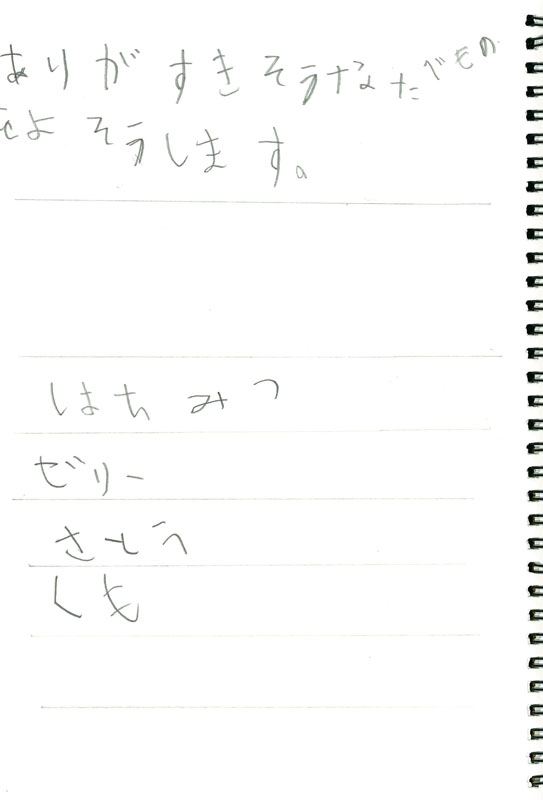 ありがすきそうなたべもの
をよそうします。
はちみつ
ゼリー
さとう
くも